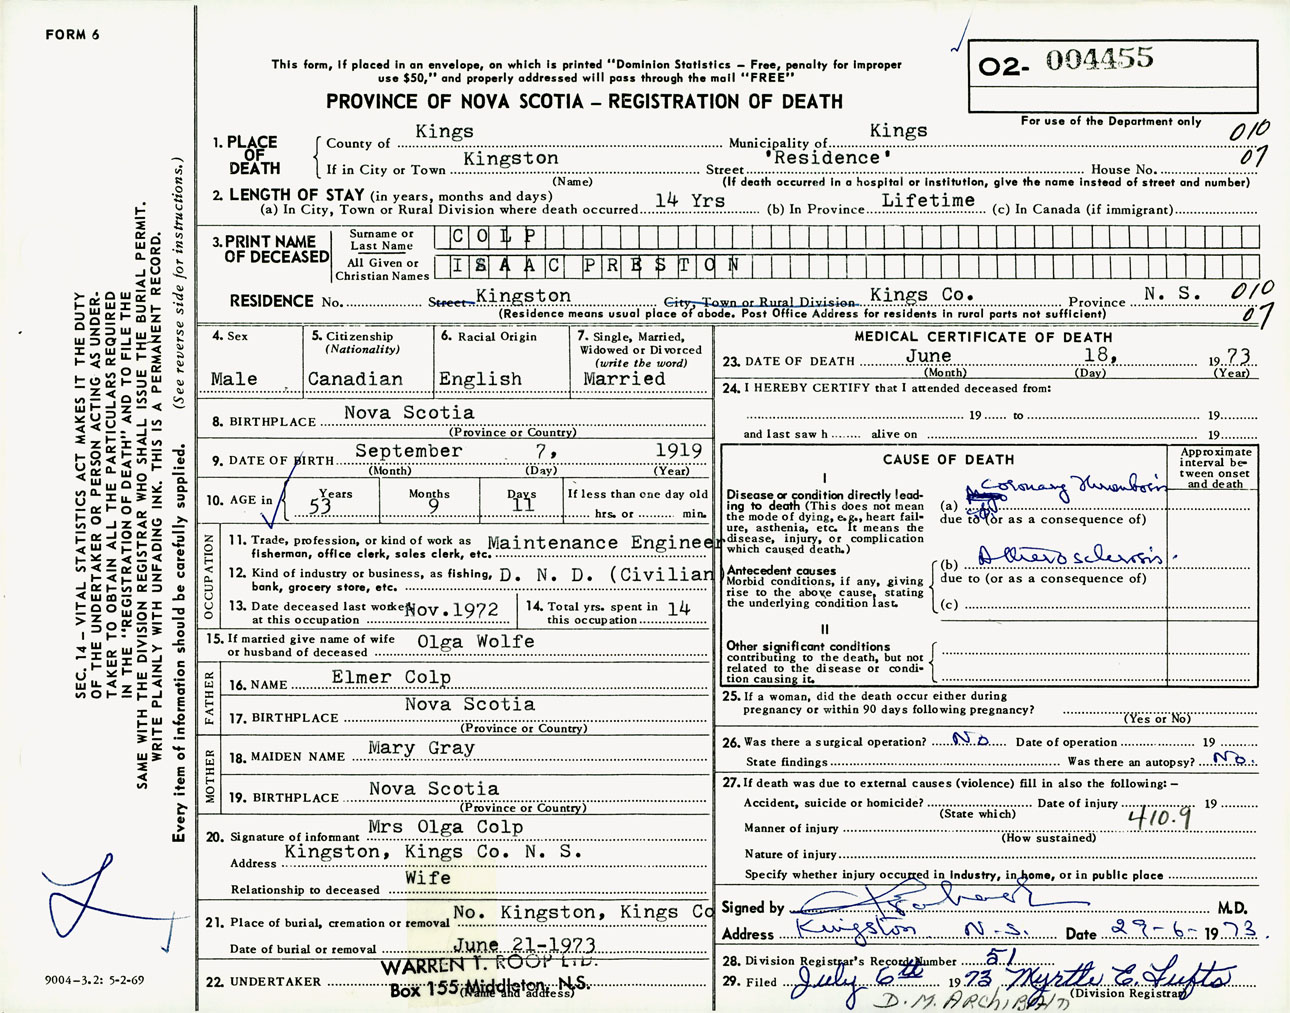 FORM 6
This form, if placed in an envelope, on which is printed "Dominion Statistics – Free, penalty for improper
use $50," and properly addressed will pass through the mail "FREE"
PROVINCE OF NOVA SCOTIA – REGISTRATION OF DEATH
O2- 004455
For use of the Department only
SEC. 14 – VITAL STATISTICS ACT MAKES IT THE DUTY
OF THE UNDERTAKER OR PERSON ACTING AS UNDER-
TAKER TO OBTAIN ALL THE PARTICULARS REQUIRED
IN THE "REGISTRATION OF DEATH" AND TO FILE THE
SAME WITH THE DIVISION REGISTRAR WHO SHALL ISSUE THE BURIAL PERMIT.
WRITE PLAINLY WITH UNFADING INK. THIS IS A PERMANENT RECORD.
Every item of information should be carefully supplied. (See reverse side for instructions.)
1. PLACE OF DEATH
County of Kings Municipality of Kings 010
If in City or Town Kingston Street 'Residence' House No. 07
(Name) (If death occurred in a hospital or institution, give the name instead of street and number)
2. LENGTH OF STAY (in years, months and days)
(a) In City, Town or Rural Division where death occurred 14 Yrs (b) In Province Lifetime (c) In Canada (if immigrant)
3. PRINT NAME OF DECEASED
Surname or Last Name COLP
All Given or Christian Names ISAAC PRESTON
RESIDENCE No. Street Kingston City, Town or Rural Division Kings Co. Province N. S. 010
(Residence means usual place of abode. Post Office Address for residents in rural parts not sufficient) 07
4. Sex
Male
5. Citizenship
(Nationality)
Canadian
6. Racial Origin
English
7. Single, Married,
Widowed or Divorced
(write the word)
Married
8. BIRTHPLACE Nova Scotia
(Province or Country)
9. DATE OF BIRTH September 7, 1919
(Month) (Day) (Year)
10. AGE in Years 53 Months 9 Days 11 If less than one day old
hrs. or min.
OCCUPATION
11. Trade, profession, or kind of work as Maintenance Engineer
fisherman, office clerk, sales clerk, etc.
12. Kind of industry or business, as fishing, D. N. D. (Civilian)
bank, grocery store, etc.
13. Date deceased last worked Nov.1972
at this occupation
14. Total yrs. spent in 14
this occupation
15. If married give name of wife Olga Wolfe
or husband of deceased
FATHER
16. NAME Elmer Colp
17. BIRTHPLACE Nova Scotia
(Province or Country)
MOTHER
18. MAIDEN NAME Mary Gray
19. BIRTHPLACE Nova Scotia
(Province or Country)
20. Signature of informant Mrs Olga Colp
Address Kingston, Kings Co. N. S.
Relationship to deceased Wife
21. Place of burial, cremation or removal No. Kingston, Kings Co
Date of burial or removal June 21-1973
22. UNDERTAKER WARREN T. ROOP LTD.
Box 155 Middleton, N.S.
(Name and address)
MEDICAL CERTIFICATE OF DEATH
23. DATE OF DEATH June 18, 1973
(Month) (Day) (Year)
24. I HEREBY CERTIFY that I attended deceased from:
19 to 19
and last saw h alive on 19
CAUSE OF DEATH
Approximate interval be-
tween onset and death
I
Disease or condition directly lead-
ing to death (This does not mean
the mode of dying, e.g., heart fail-
ure, asthenia, etc. It means the
disease, injury, or complication
which caused death.)
(a) Coronary Thrombosis
due to (or as a consequence of)
Antecedent causes
Morbid conditions, if any, giving
rise to the above cause, stating
the underlying condition last.
(b) Atherosclerosis
due to (or as a consequence of)
(c)
II
Other significant conditions
contributing to the death, but not
related to the disease or condi-
tion causing it.
25. If a woman, did the death occur either during
pregnancy or within 90 days following pregnancy?
(Yes or No)
26. Was there a surgical operation? No Date of operation 19
State findings Was there an autopsy? No.
27. If death was due to external causes (violence) fill in also the following:–
Accident, suicide or homicide? Date of injury 19
(State which) 410.9
Manner of injury
(How sustained)
Nature of injury
Specify whether injury occurred in industry, in home, or in public place
Signed by M.D.
Address Kingston N.S. Date 29-6-1973.
28. Division Registrar's Record Number 51
29. Filed July 6th 1973 Myrtle E. Tufts
(Division Registrar)
D.M. ARCHIBALD
9004-3.2: 5-2-69